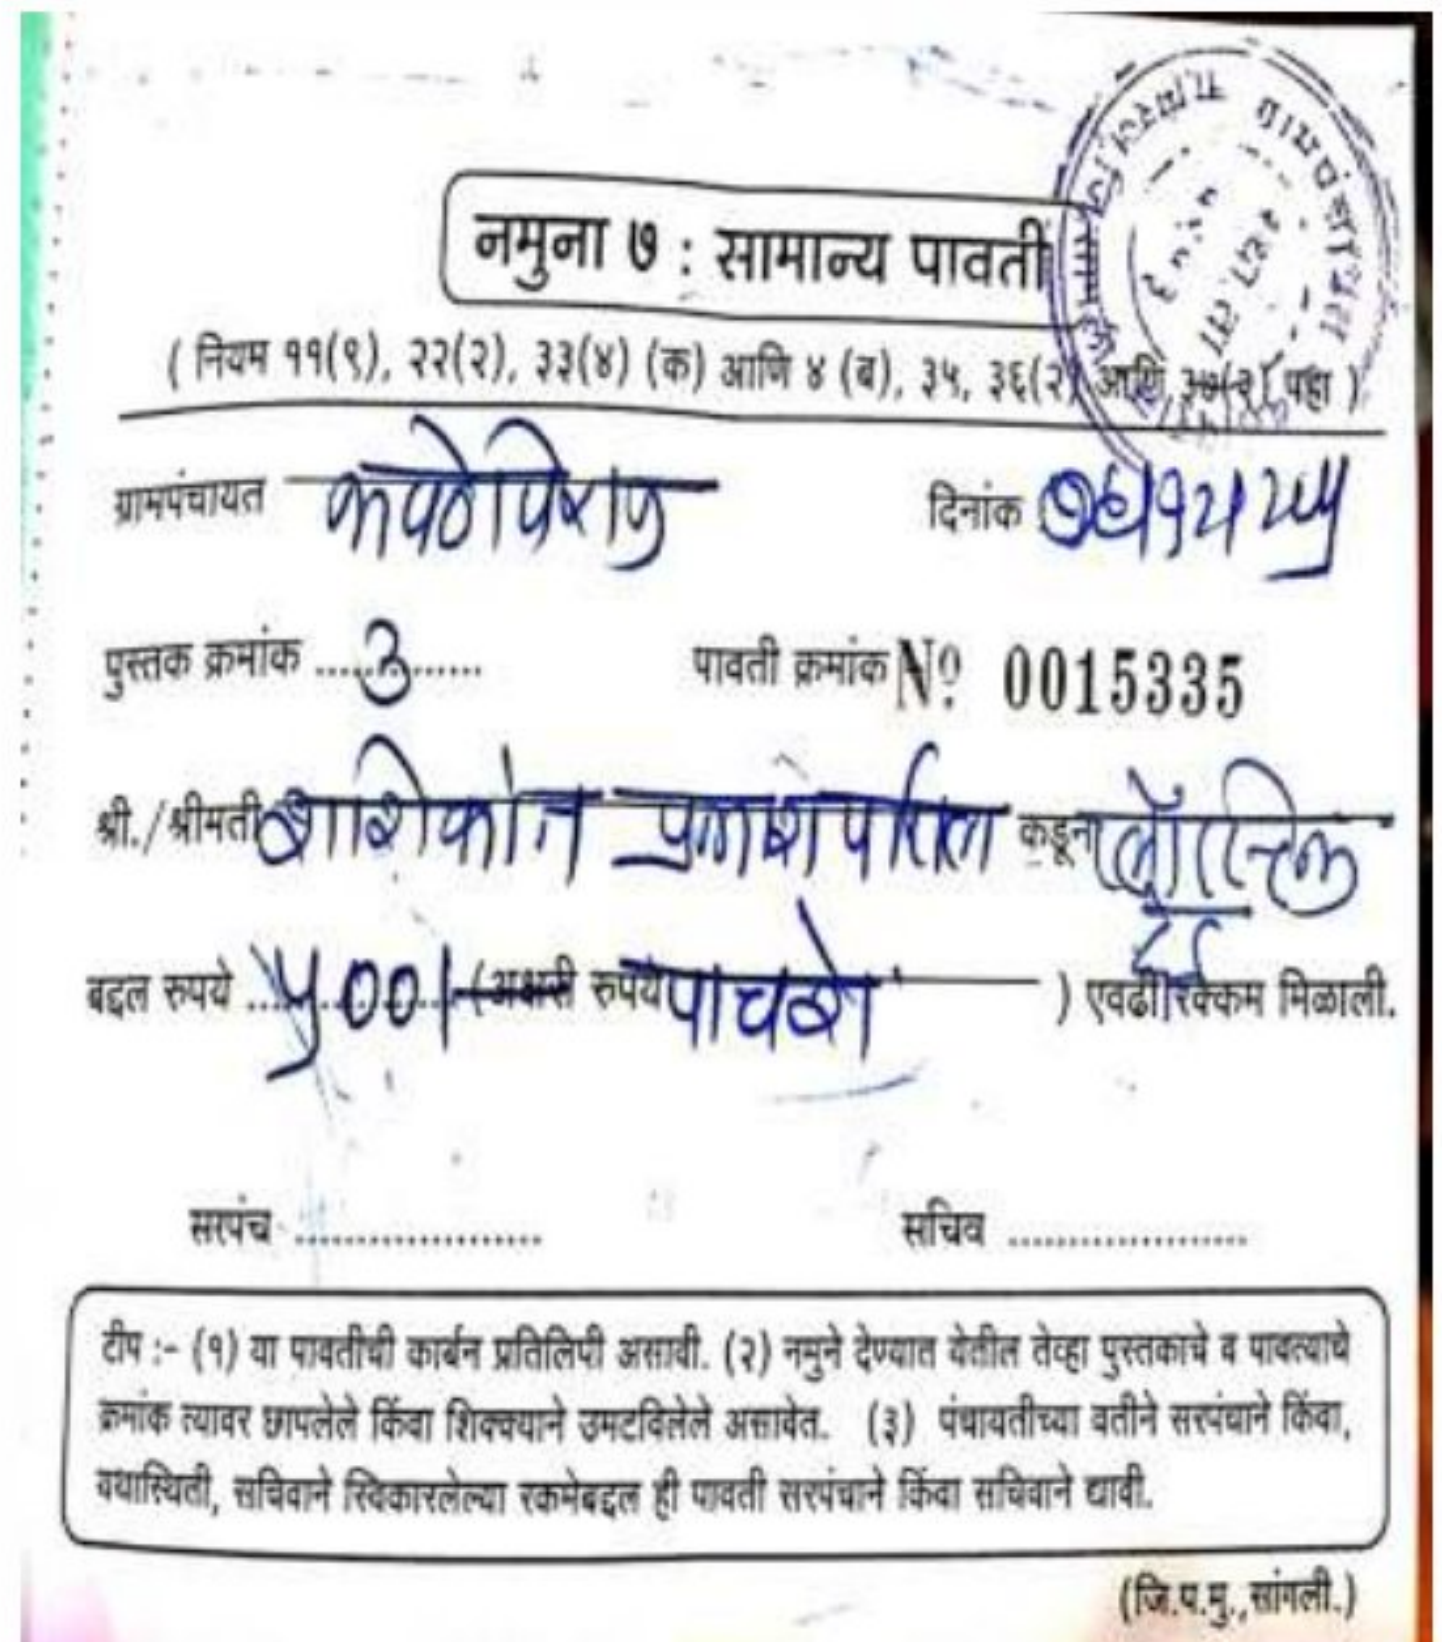 नमुना ७ : सामान्य पावती
( नियम ११(९), २२(२), ३३(४) (क) आणि ४ (ब), ३५, ३६(२) आणि ३७(२) पहा )
ग्रामपंचायत कवठेपिरान दिनांक
पुस्तक क्रमांक ......3...... पावती क्रमांक Nº 0015335
श्री./श्रीमती शशिकांत प्रकाश पाटील कडून
बद्दल रुपये ... ५००/- (अक्षरी रुपये पाचशे ) एवढी रक्कम मिळाली.
सरपंच .................... सचिव ....................
टीप :- (१) या पावतीची कार्बन प्रतिलिपी असावी. (२) नमुने देण्यात येतील तेव्हा पुस्तकाचे व पावत्याचे
क्रमांक त्यावर छापलेले किंवा शिक्क्याने उमटविलेले असावेत. (३) पंचायतीच्या वतीने सरपंचाने किंवा,
यथास्थिती, सचिवाने स्विकारलेल्या रकमेबद्दल ही पावती सरपंचाने किंवा सचिवाने द्यावी.
(जि.प.मु.,सांगली.)